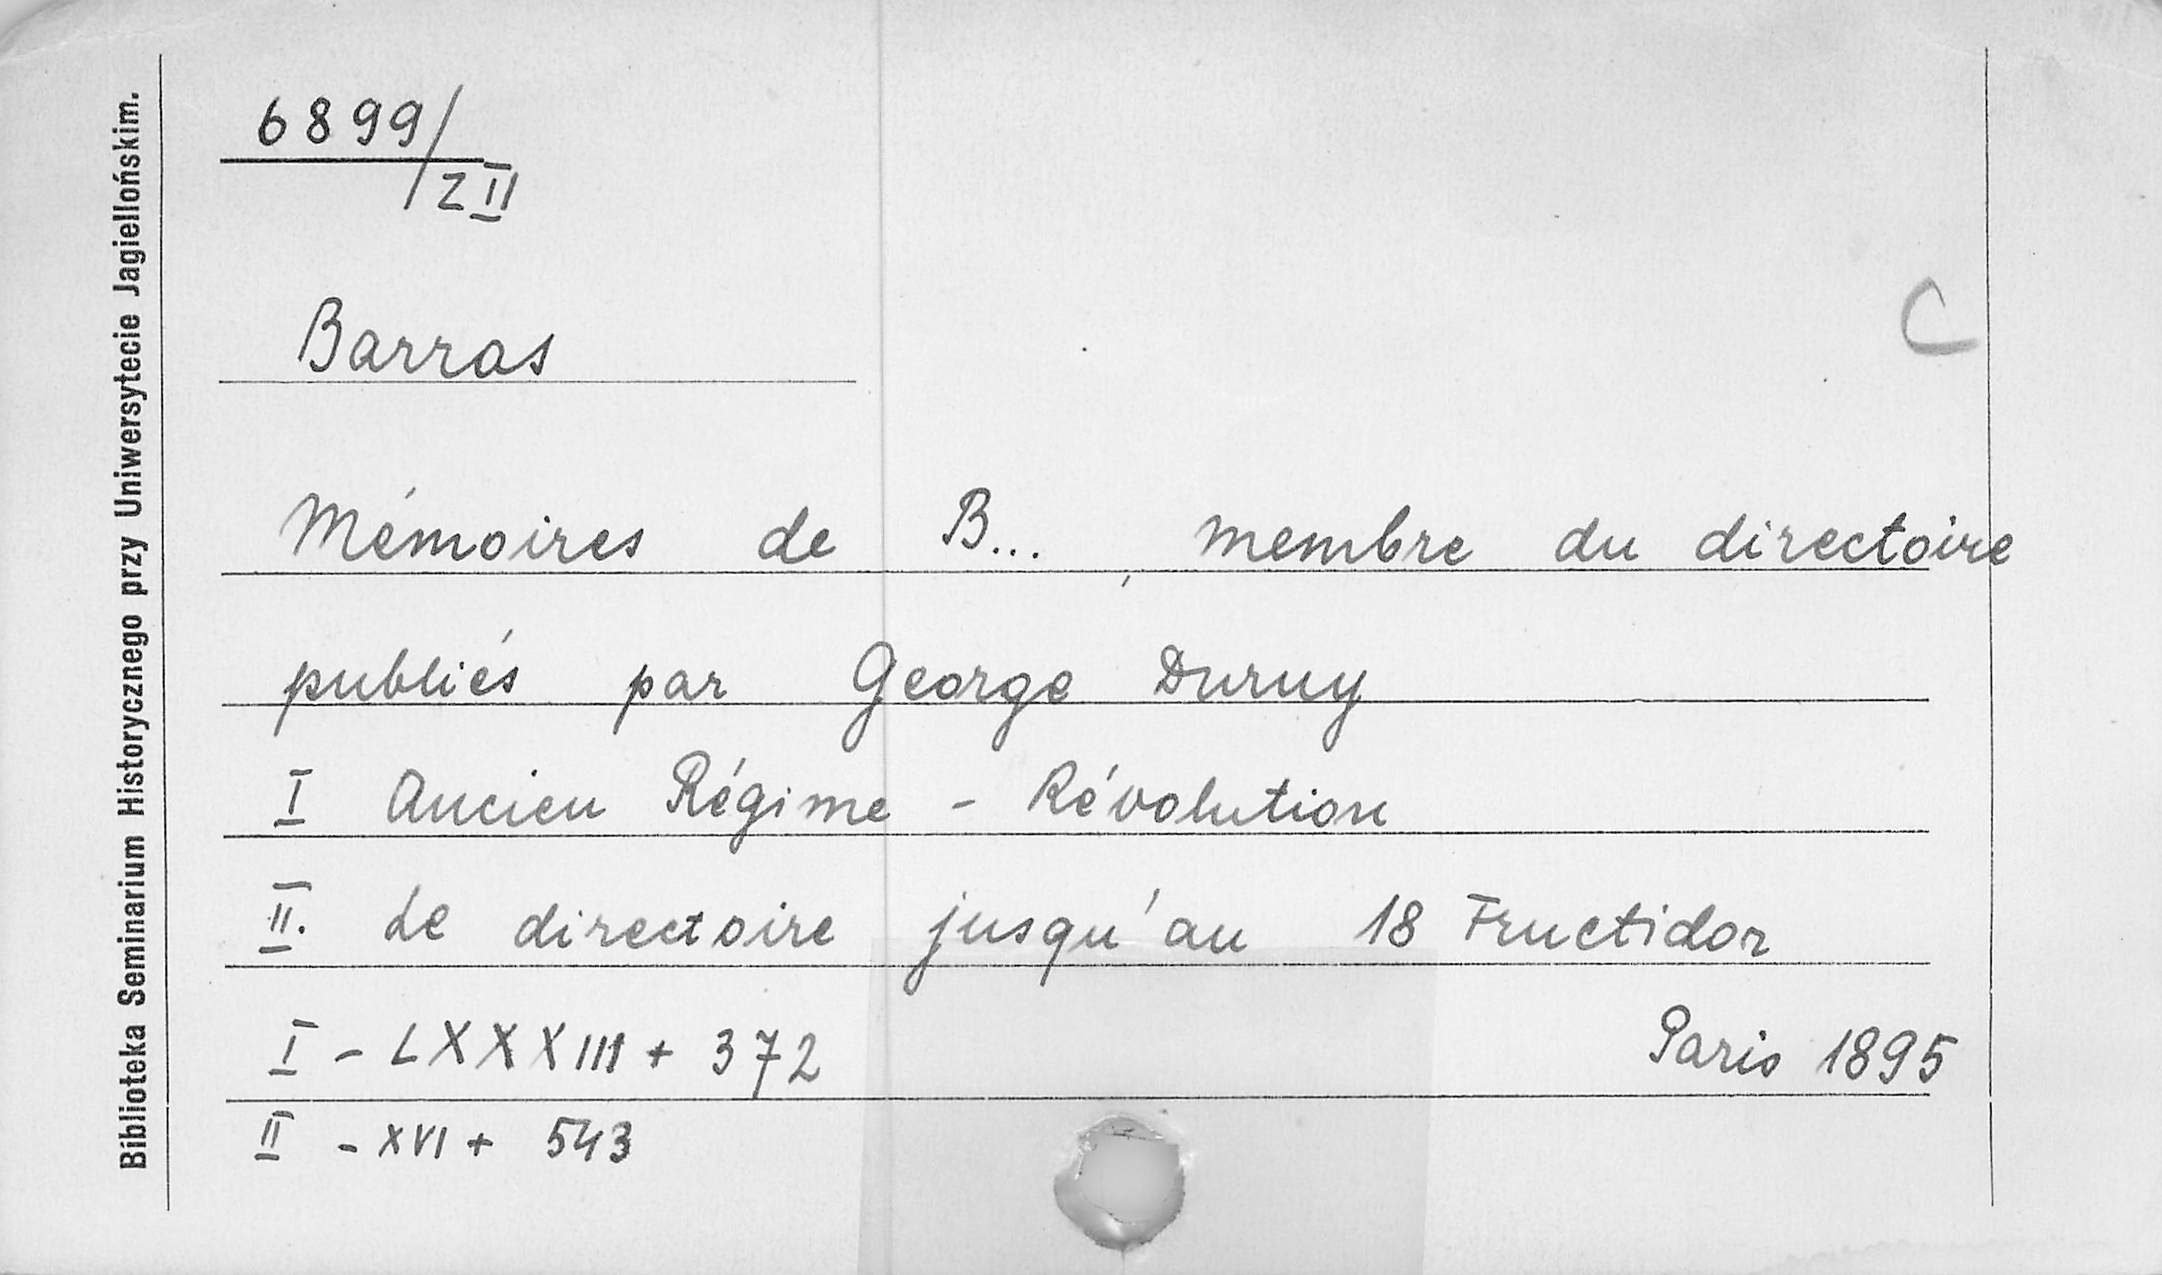 Biblioteka Seminarium Historycznego przy Uniwersytecie Jagiellońskim.
6899/
Z II
C
Barras
Mémoires de B..., membre du directoire
publiés par George Duruy
I Ancien Régime - Révolution
II. Le directoire jusqu'au 18 Fructidor
I - LXXXIII + 372 Paris 1895
II - XVI + 543